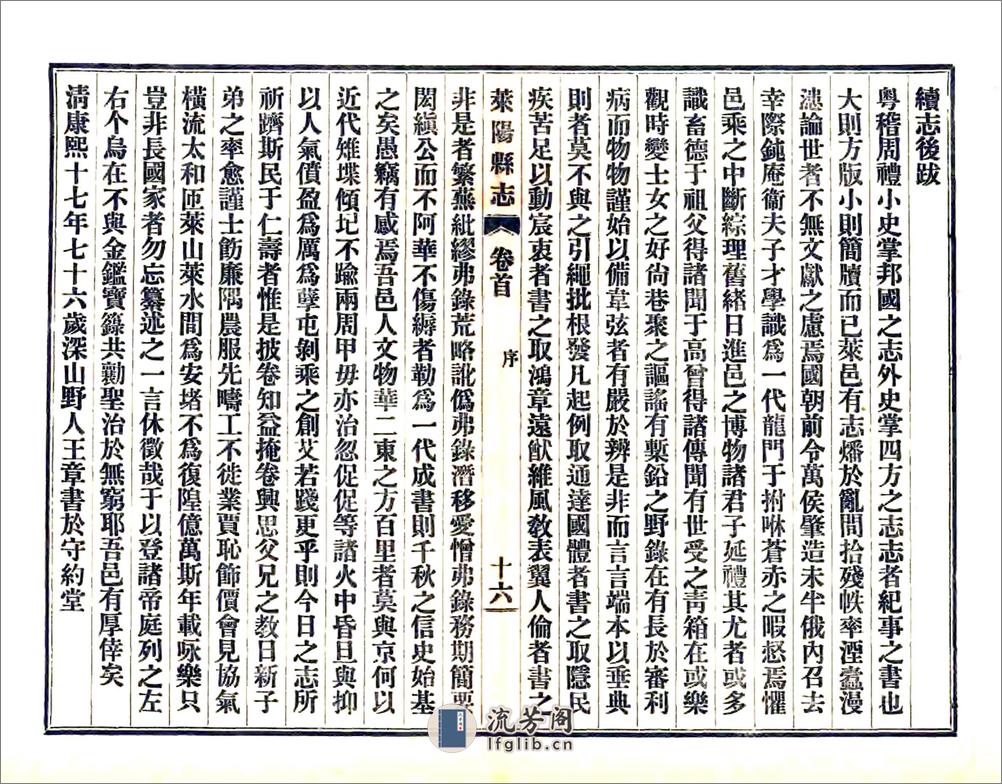 續志後跋
粵稽周禮小史掌邦國之志外史掌四方之志志者紀事之書也
大則方版小則簡牘而已萊邑有志燔於亂間拾殘帙率湮蠹漫
漶論世者不無文獻之慮焉國朝前令萬侯肇造未半俄內召去
幸際鈍庵衛夫子才學識為一代龍門于拊咻蒼赤之暇惄焉懼
邑乘之中斷綜理舊緒日進邑之博物諸君子延禮其尤者或多
識畜德于祖父得諸聞于高曾得諸傳聞有世受之靑箱在或樂
觀時變士女之好尙巷聚之謳謠有槧鉛之野錄在有長於審利
病而物物謹始以備韋弦者有嚴於辨是非而言言端本以垂典
則者莫不與之引繩批根發凡起例取通達國體者書之取隱民
疾苦足以動宸衷者書之取鴻章遠猷維風敎表翼人倫者書之
萊陽縣志
卷首
序
十六
非是者繁蕪紕繆弗錄荒略訛僞弗錄潛移愛憎弗錄務期簡要
閎縝公而不阿華不傷縟者勒為一代成書則千秋之信史始基
之矣愚竊有感焉吾邑人文物華二東之方百里者莫與京何以
近代雉堞傾圮不踰兩周甲毋亦治忽促促等諸火中昏旦與抑
以人氣債盈為厲為孽屯剝乘之創艾若踐更乎則今日之志所
祈躋斯民于仁壽者惟是披卷知益掩卷興思父兄之教日新子
弟之率愈謹士飭廉隅農服先疇工不徙業賈恥飾價會見協氣
橫流太和匝萊山萊水間為安堵不為復隍億萬斯年載咏樂只
豈非長國家者勿忘纂述之一言休徵哉于以登諸帝庭列之左
右个烏在不與金鑑寶籙共勷聖治於無窮耶吾邑有厚倖矣
清康熙十七年七十六歲深山野人王章書於守約堂
流芳阁
lfglib.cn